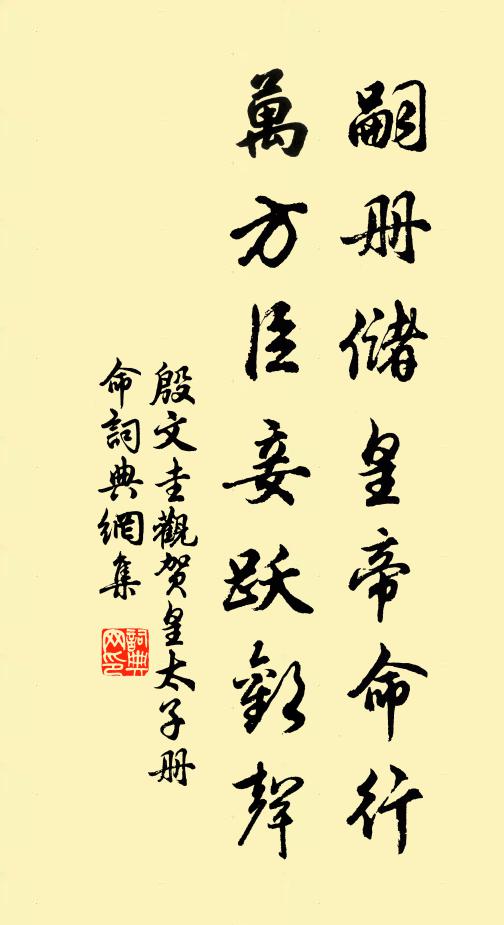 嗣册儲皇帝命行
萬方臣妾跃歡聲
殷文圭觀贺皇太子册
命詞典網集
詞典网印